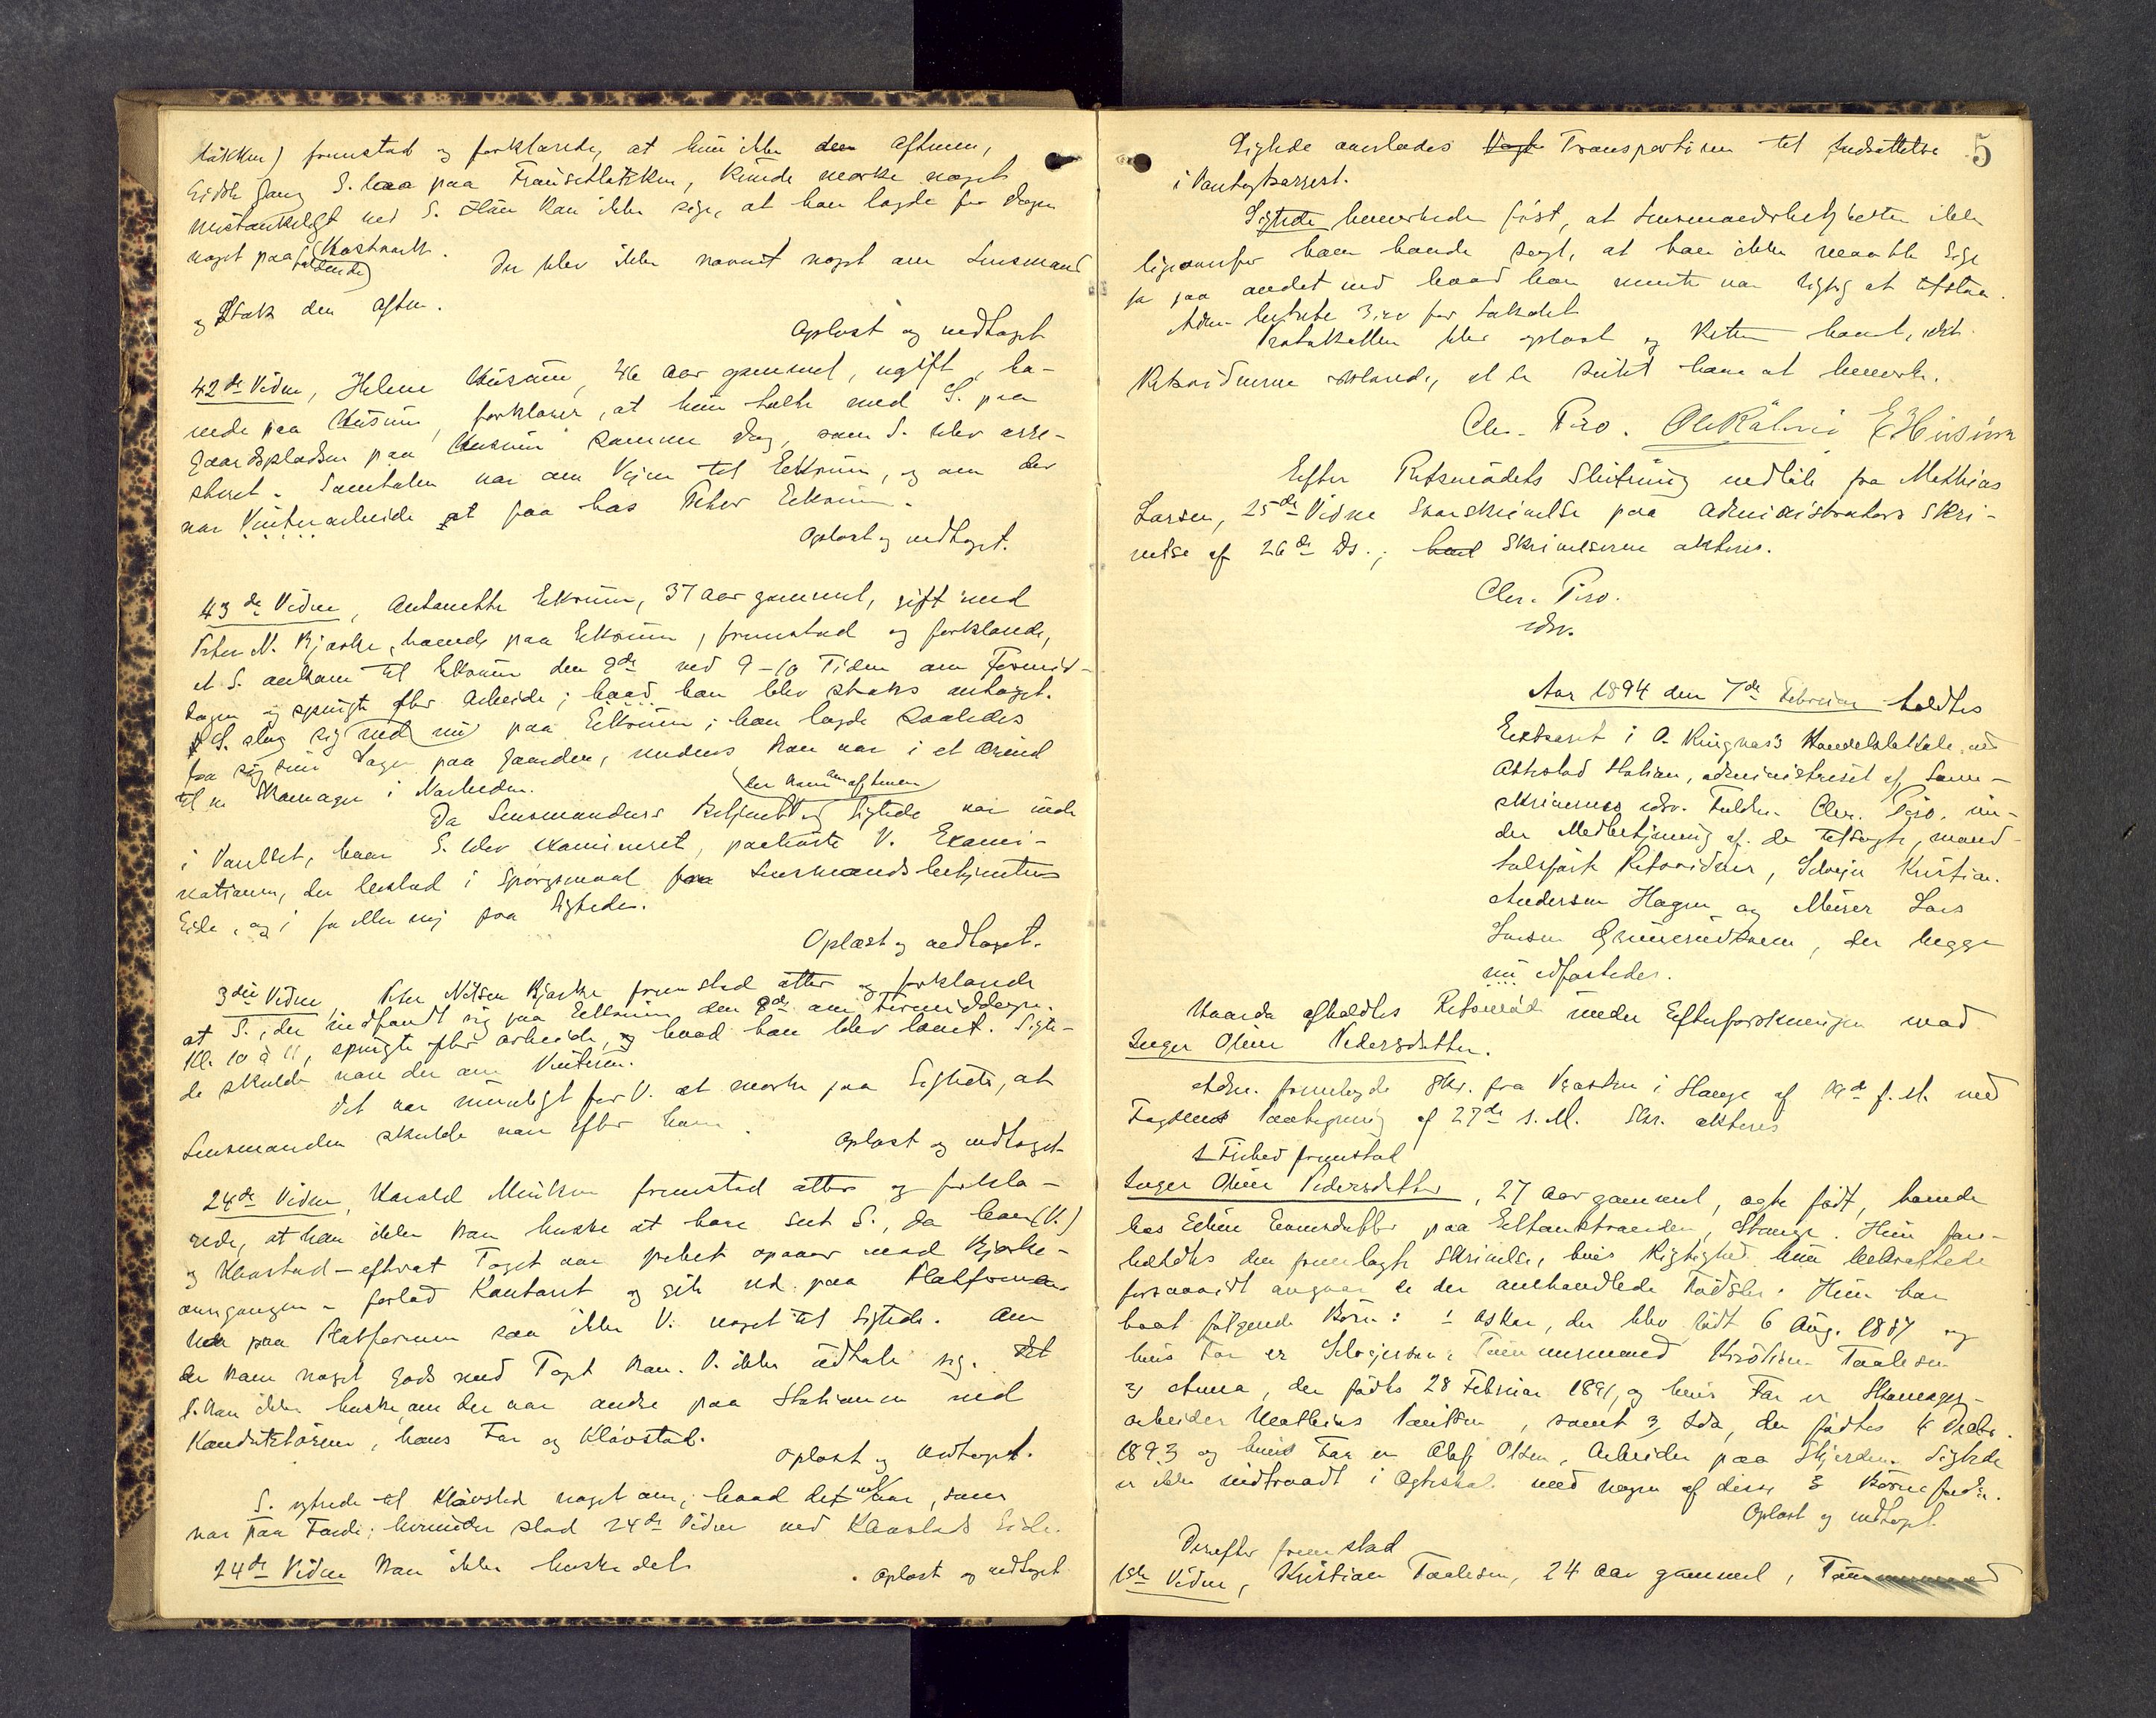 fremstod og forklarede, at hun ikke den Aftenen,
sidste Gang S. laa paa Franseth, kunde mærke noget
mistænkeligt ved S. Hun kan ikke sige, at han lagde for Dagen
noget paafaldende. Der blev ikke nævnt noget om Lensmand
den Aften.
Oplæst og vedtaget
42de Vidne, Helene Husum, 46 Aar gammel, ugift, bo-
ende paa Husum, forklarer, at hun talte med S. paa
Gaardspladsen paa Husum samme Dag, som S. blev arre-
steret. Samtalen var om Veien til Ekrum, og om der
var Vinterarbeide at faa hos Peter Ekrum.
Oplæst og vedtaget.
43de Vidne, Antonette Ekrum, 37 Aar gammel, gift med
Peter N. Bjerke, boende paa Ekrum, fremstod og forklarede,
at S. ankom til Ekrum den 9de ved 9-10 Tiden om Formid-
dagen og spurgte efter Arbeide; han blev straks antaget.
S. slog sig ned paa Ekrum; han lagde saaledes
fra sig sine Sager paa Gaarden, medens han var i et Ærind
til en Skomager i Nærheden.
Da Lensmandens Betjent der kom om Aftenen og Sigtede var inde
i Vaaningen, hvor S. blev examineret, paahørte V. Exami-
nationen, der bestod i Spørgsmaal fra Lensmandsbetjentens
Side, og i ja eller nei fra Sigtedes.
Oplæst og vedtaget.
3die Vidne, Peter Nilsen Bjerke fremstod atter og forklarede
at S., der indfandt sig paa Ekrum den 9de om Formiddagen
Kl. 10 à 11, spurgte efter Arbeide, og han blev lovet. Sigte-
de skulde være der om Vinteren.
Det var umuligt for V. at mærke paa Sigtede, at
Lensmanden skulde være efter ham.
Oplæst og vedtaget
24de Vidne, Harald fremstod atter og forkla-
rede, at han ikke kan huske at have set S., da han (V.)
og Klavstad - efterat Toget var opover mod Bjerke-
overgangen - forlod Kontoret og gik ud paa Platformen
paa Platformen saa ikke V. noget til Sigtede. Om
der kom noget Gods med Toget kan V. ikke udtale sig.
V. kan ikke huske, om der var andre paa Stationen end
Konduktøren, hans Far og Klavstad.
Oplæst og vedtaget.
S. ytrede til Klavstad noget om, hvad det var, som
var paa Færde; herunder stod 24de Vidne ved Klavstads Side.
24de Vidne kan ikke huske det.
Oplæst og vedtaget
5
Sigtede overlodes Transportøren til Indsættelse
i Varetægtsarrest.
Sigtede bemærkede først, at Lensmandsbetjenten ikke
ligeoverfor ham havde sagt, at han ikke maatte sige
ja paa andet end hvad han mente var rigtig at tilstaa.
Adm. betalte 3,00 for Lokalet
Protokollen blev oplæst og Retten hævet, idet
Retsvidnerne erklærede, at de intet have at bemerke.
Chr. Piro. E. Husum
Efter Retsmødets Slutning indløb fra Mathias
Larsen, 25de Vidne Svarskrivelse paa Administrators Skri-
velse af 26de ds.; Skrivelserne akteres.
Chr. Piro.
edsv.
Aar 1894 den 7de Februar holdtes
Extraret i O. Ringnæs's Handelslokale ved
Station, administreret af Soren-
skriverens edsv. Fuldm. Chr. Piro, un-
der Medbetjening af de tilsagte, mand-
talsførte Retsvidner, Kristian
Andersen Hagen og Murer Lars
Larsen, der begge
nu edfæstedes.
Hvorda afholdtes Retsmøde under Efterforskningen mod
Inger Oline Pedersdatter.
Adm. fremlagde Skr. fra Præsten i Stange af 19de f. M. med
Fogdens Paategning af 27de s. M. Skr. akteres
I Frihed fremstod
Inger Oline Pedersdatter, 27 Aar gammel, ægte født, boende
hos Eline Evensdatter paa Stange. Hun fore-
holdtes den fremlagte Skrivelse, hvis Rigtighed hun bekræftede
forsaavidt angaar de der omhandlede Fødsler. Hun har
havt følgende Børn: 1 Oskar, der blev født 6 Aug. 1887 og
hvis Far er Tømmermand Kristian Taalesen
2) Anna, der fødtes 28 Februar 1891, og hvis Far er Skomager-
arbeider Mathias, samt 3, Ida, der fødtes 4 Decbr.
1893 og hvis Far er Oluf Olsen, Arbeider paa Skjerden. Sigtede
er ikke indtraadt i Ægteskab med nogen af disse 3 Barnefædre.
Oplæst og vedtaget.
Derefter fremstod
1ste Vidne, Kristian Taalesen, 24 Aar gammel, Tømmermand